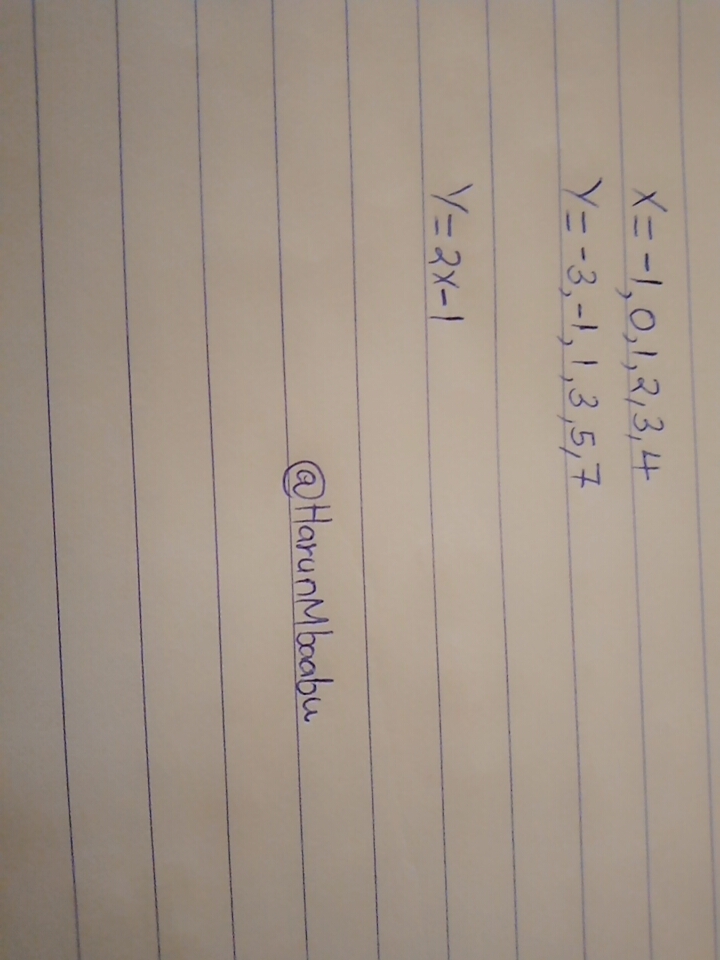 X = -1, 0, 1, 2, 3, 4
Y = -3, -1, 1, 3, 5, 7
Y = 2x - 1
@HarunMbaabu